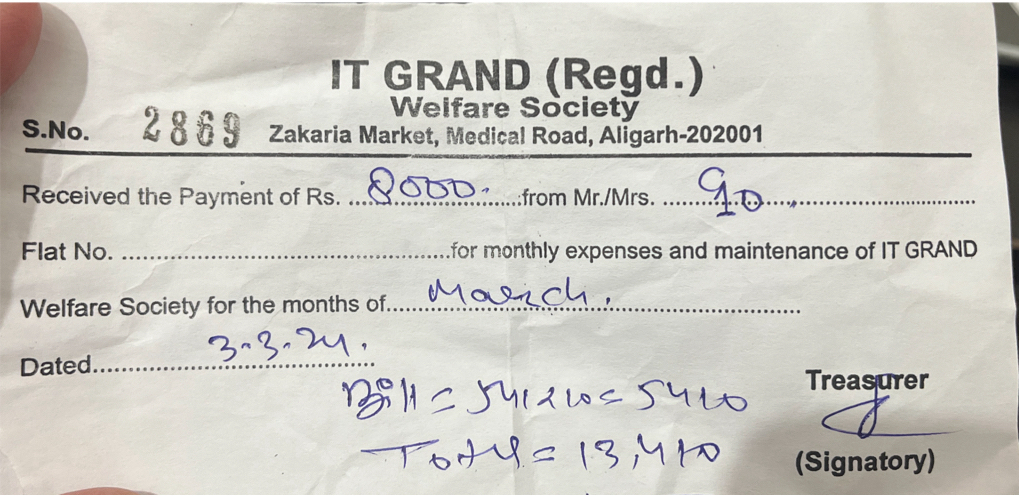 IT GRAND (Regd.)
Welfare Society
S.No. 2869 Zakaria Market, Medical Road, Aligarh-202001
Received the Payment of Rs. 8000. from Mr./Mrs. 90
Flat No. for monthly expenses and maintenance of IT GRAND
Welfare Society for the months of March.
Dated 3.3.24.
Bill = 541x10 = 5410
Treasurer
Total = 13,410
(Signatory)